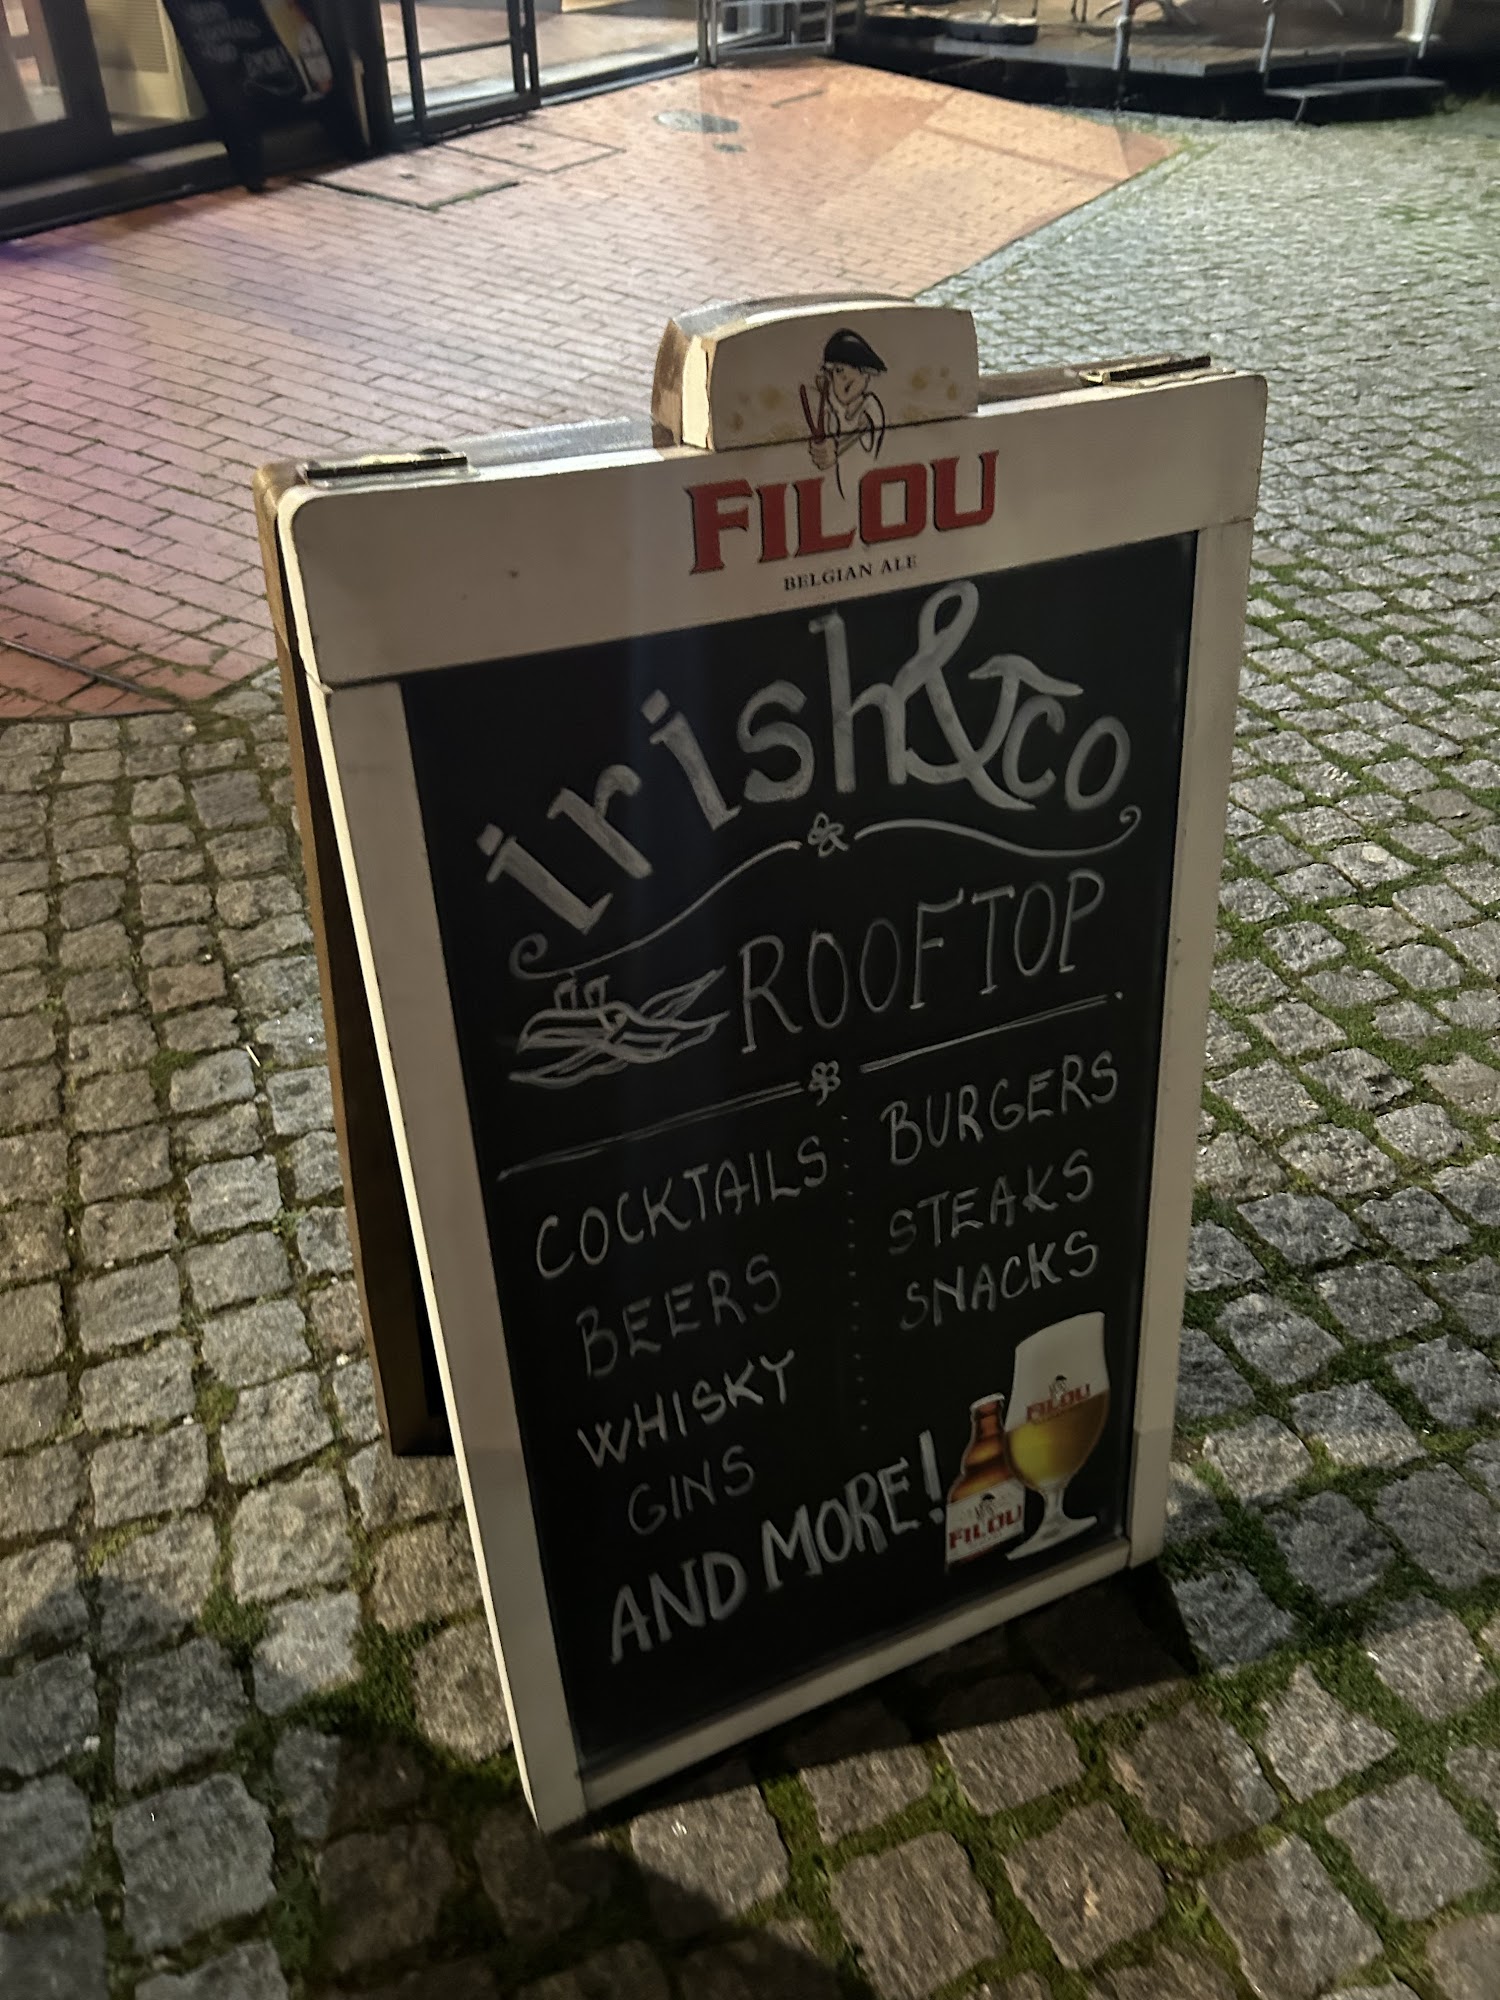 FILOU
BELGIAN ALE
irish&co
ROOFTOP
COCKTAILS
BEERS
WHISKY
GINS
BURGERS
STEAKS
SNACKS
AND MORE!
FILOU
FILOU